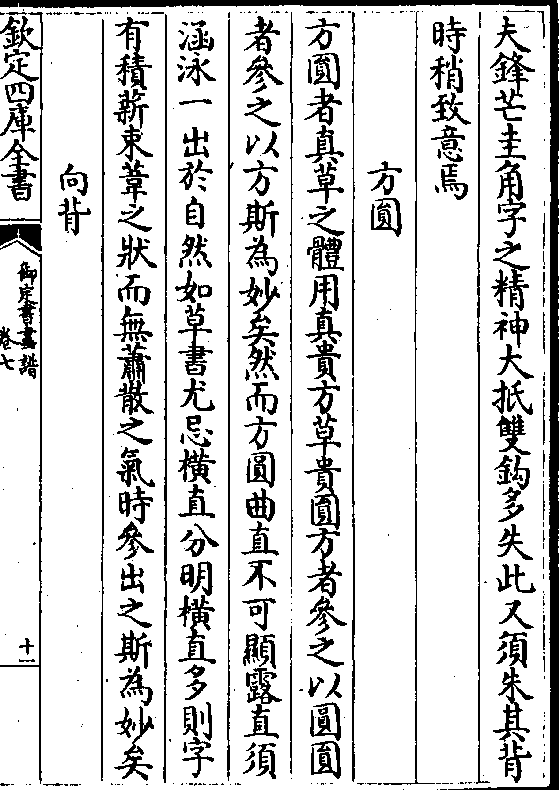 夫鋒芒圭角字之精神大抵雙鈎多失此又須朱其背
時稍致意焉
方圓
方圓者真草之體用真貴方草貴圓方者參之以圓圓
者參之以方斯為妙矣然而方圓曲直不可顯露直須
涵泳一出於自然如草書尤忌橫直分明橫直多則字
有積薪束葦之狀而無蕭散之氣時參出之斯為妙矣
向背
欽定四庫全書
御定書畫譜
卷七
十一